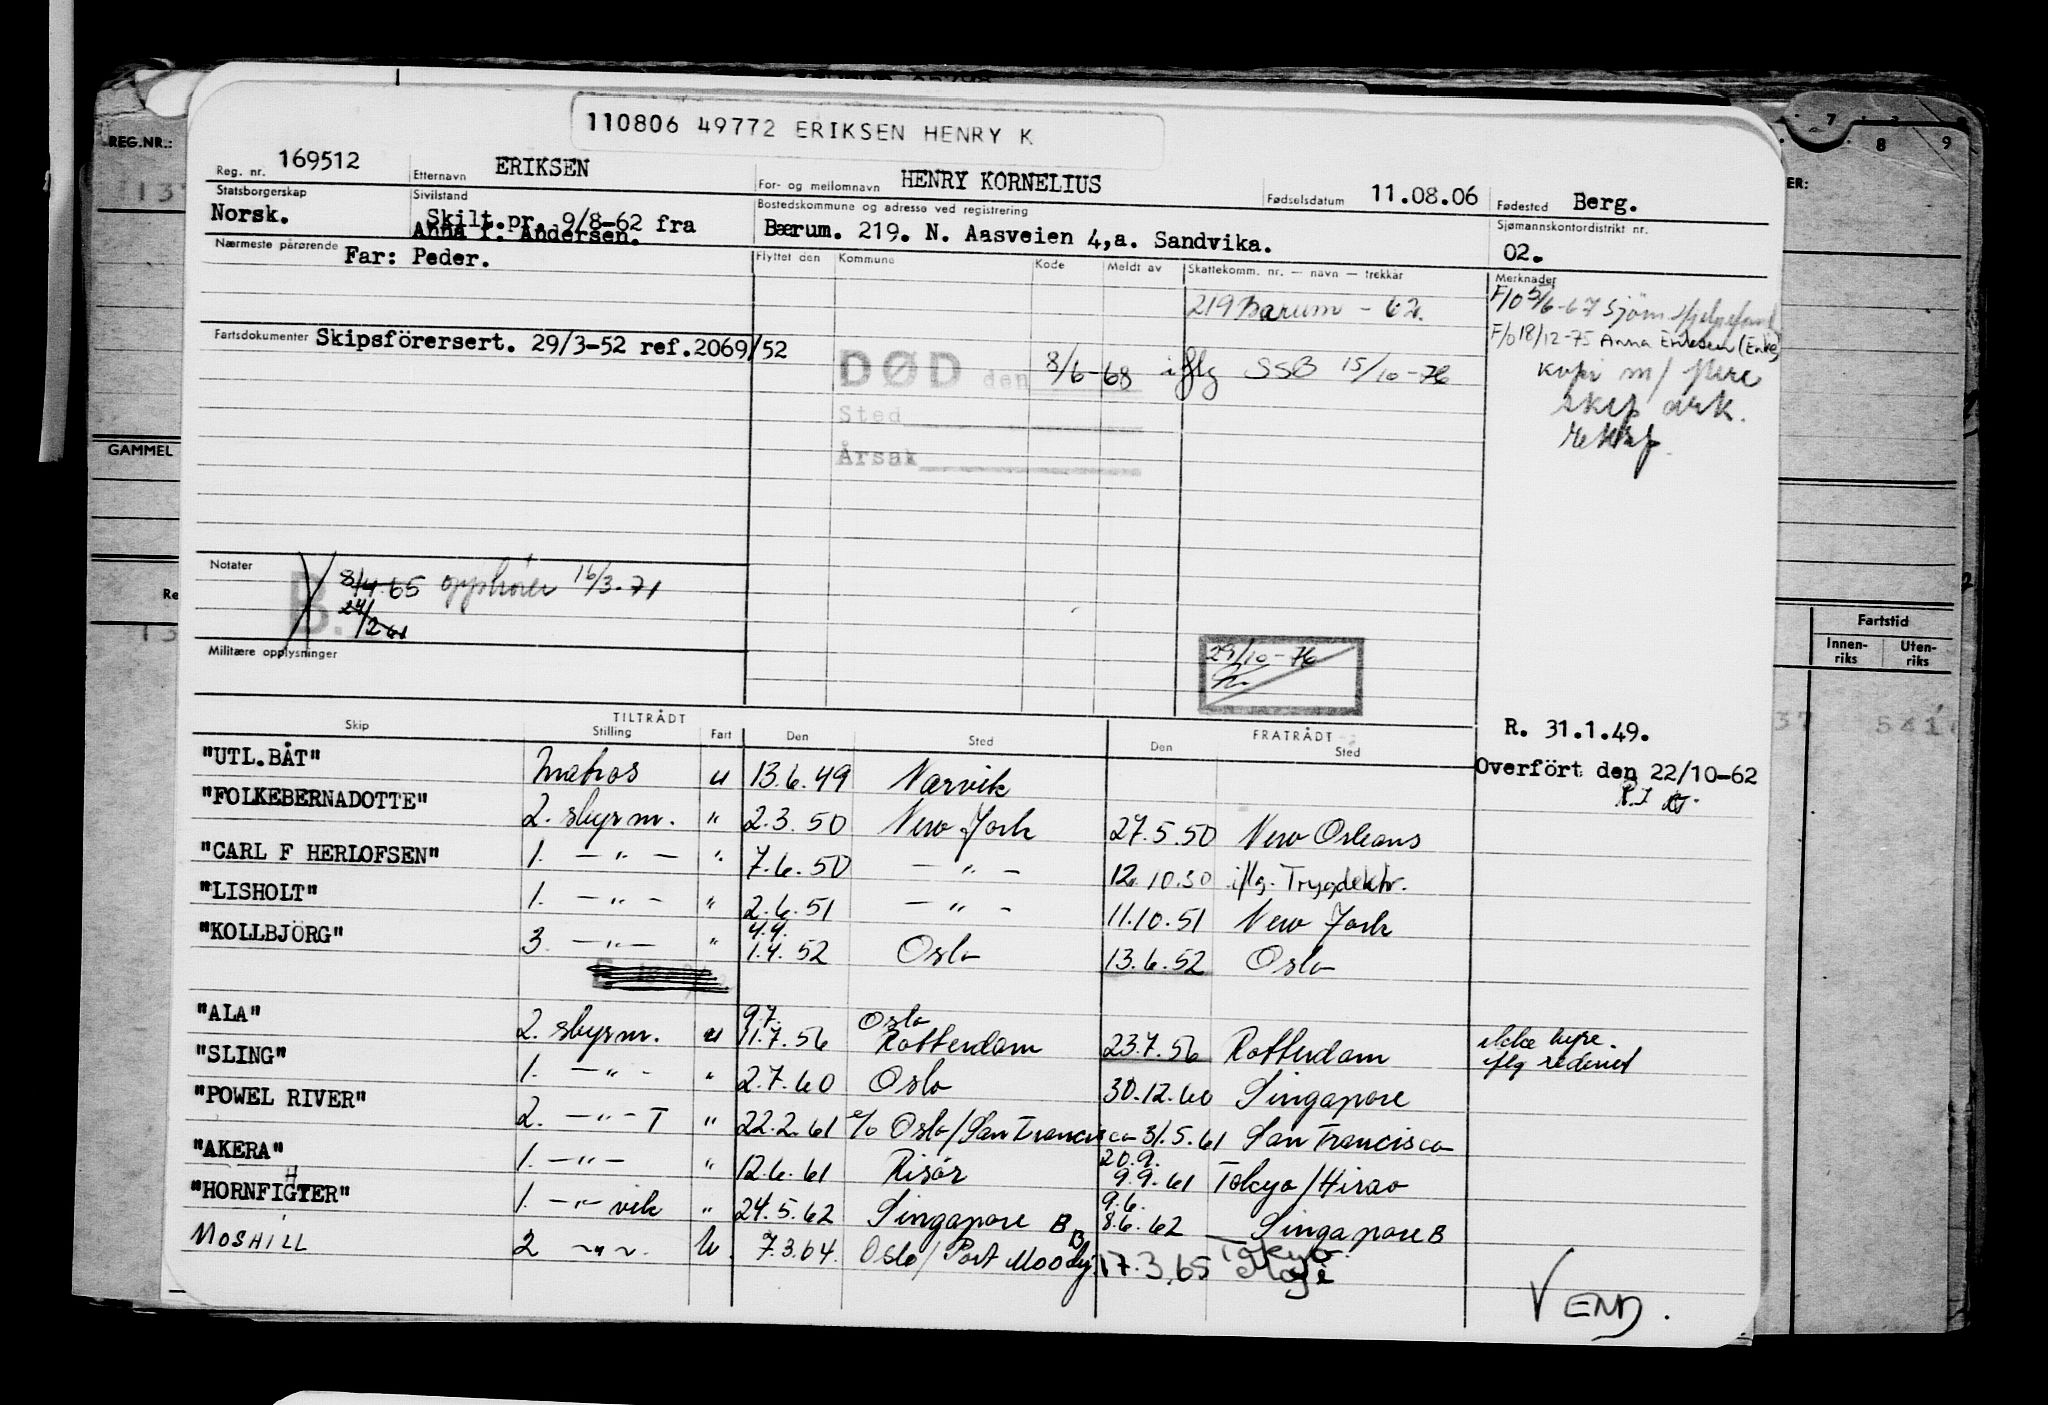 110806 49772 ERIKSEN HENRY K
REG.NR.:
Reg. nr. 169512 Etternavn ERIKSEN For- og mellomnavn HENRY KORNELIUS Fødselsdatum 11.08.06 Fødested Berg.
Statsborgerskap Norsk. Sivilstand Skilt.pr. 9/8-62 fra
Anna I. Andersen.
Bostedskommune og adresse ved registrering
Bærum. 219. N. Aasveien 4,a. Sandvika.
Sjømannskontordistrikt nr.
02.
Nærmeste pårørende Far: Peder.
Flyttet den Kommune Kode Meldt av Skattekomm. nr. — navn — trekkår Merknader
219 Bærum - 62.
F/o 5/6-67 Sjøm
F/o 18/12-75 Anna Eriksen (Enke)
kopi m/ flere
skip ark.
Fartsdokumenter Skipsförersert. 29/3-52 ref.2069/52
DØD den 8/6-68 iflg SSB 15/10-76
Sted
Årsak
GAMMEL
Notater
B. 8/4-65 opphører 16/3-71
24/
Militære opplysninger
29/10-76
Fartstid
Innen-riks Uten-riks
R. 31.1.49.
Overfört den 22/10-62
TILTRÅDT FRATRÅDT
Skip Stilling Fart Den Sted Den Sted
"UTL.BÅT" Matros u 13.6.49 Narvik
"FOLKEBERNADOTTE" 2. styrm. " 2.3.50 New York 27.5.50 New Orleans
"CARL F HERLOFSEN" 1. — " — " 7.6.50 — " — 12.10.50 iflg. Trygdektr.
"LISHOLT" 1. — " — " 2.6.51 — " — 11.10.51 New York
"KOLLBJÖRG" 3. — " — " 4.4. 1.4.52 Oslo 13.6.52 Oslo
"ALA" 2. styrm. u 9.7. 11.7.56 Oslo Rotterdam 23.7.56 Rotterdam ikke hyre.
iflg rederiet
"SLING" 1. — " — " 2.7.60 Oslo 30.12.60 Singapore
"POWEL RIVER" 2. — " — T " 22.2.61 Oslo/San Francisco 31.5.61 San Francisco
"AKERA" 1. — " — " 12.6.61 Risör 20.9. 9.9.61 Tokyo/Hirao
"HORNFIGHTER" 1. — " — vik " 24.5.62 Singapore B 9.6. 8.6.62 Singapore B
MOSHILL 2 — " — U. 7.3.64 Oslo/Port Moody B 17.3.65 Tokyo
VEND.